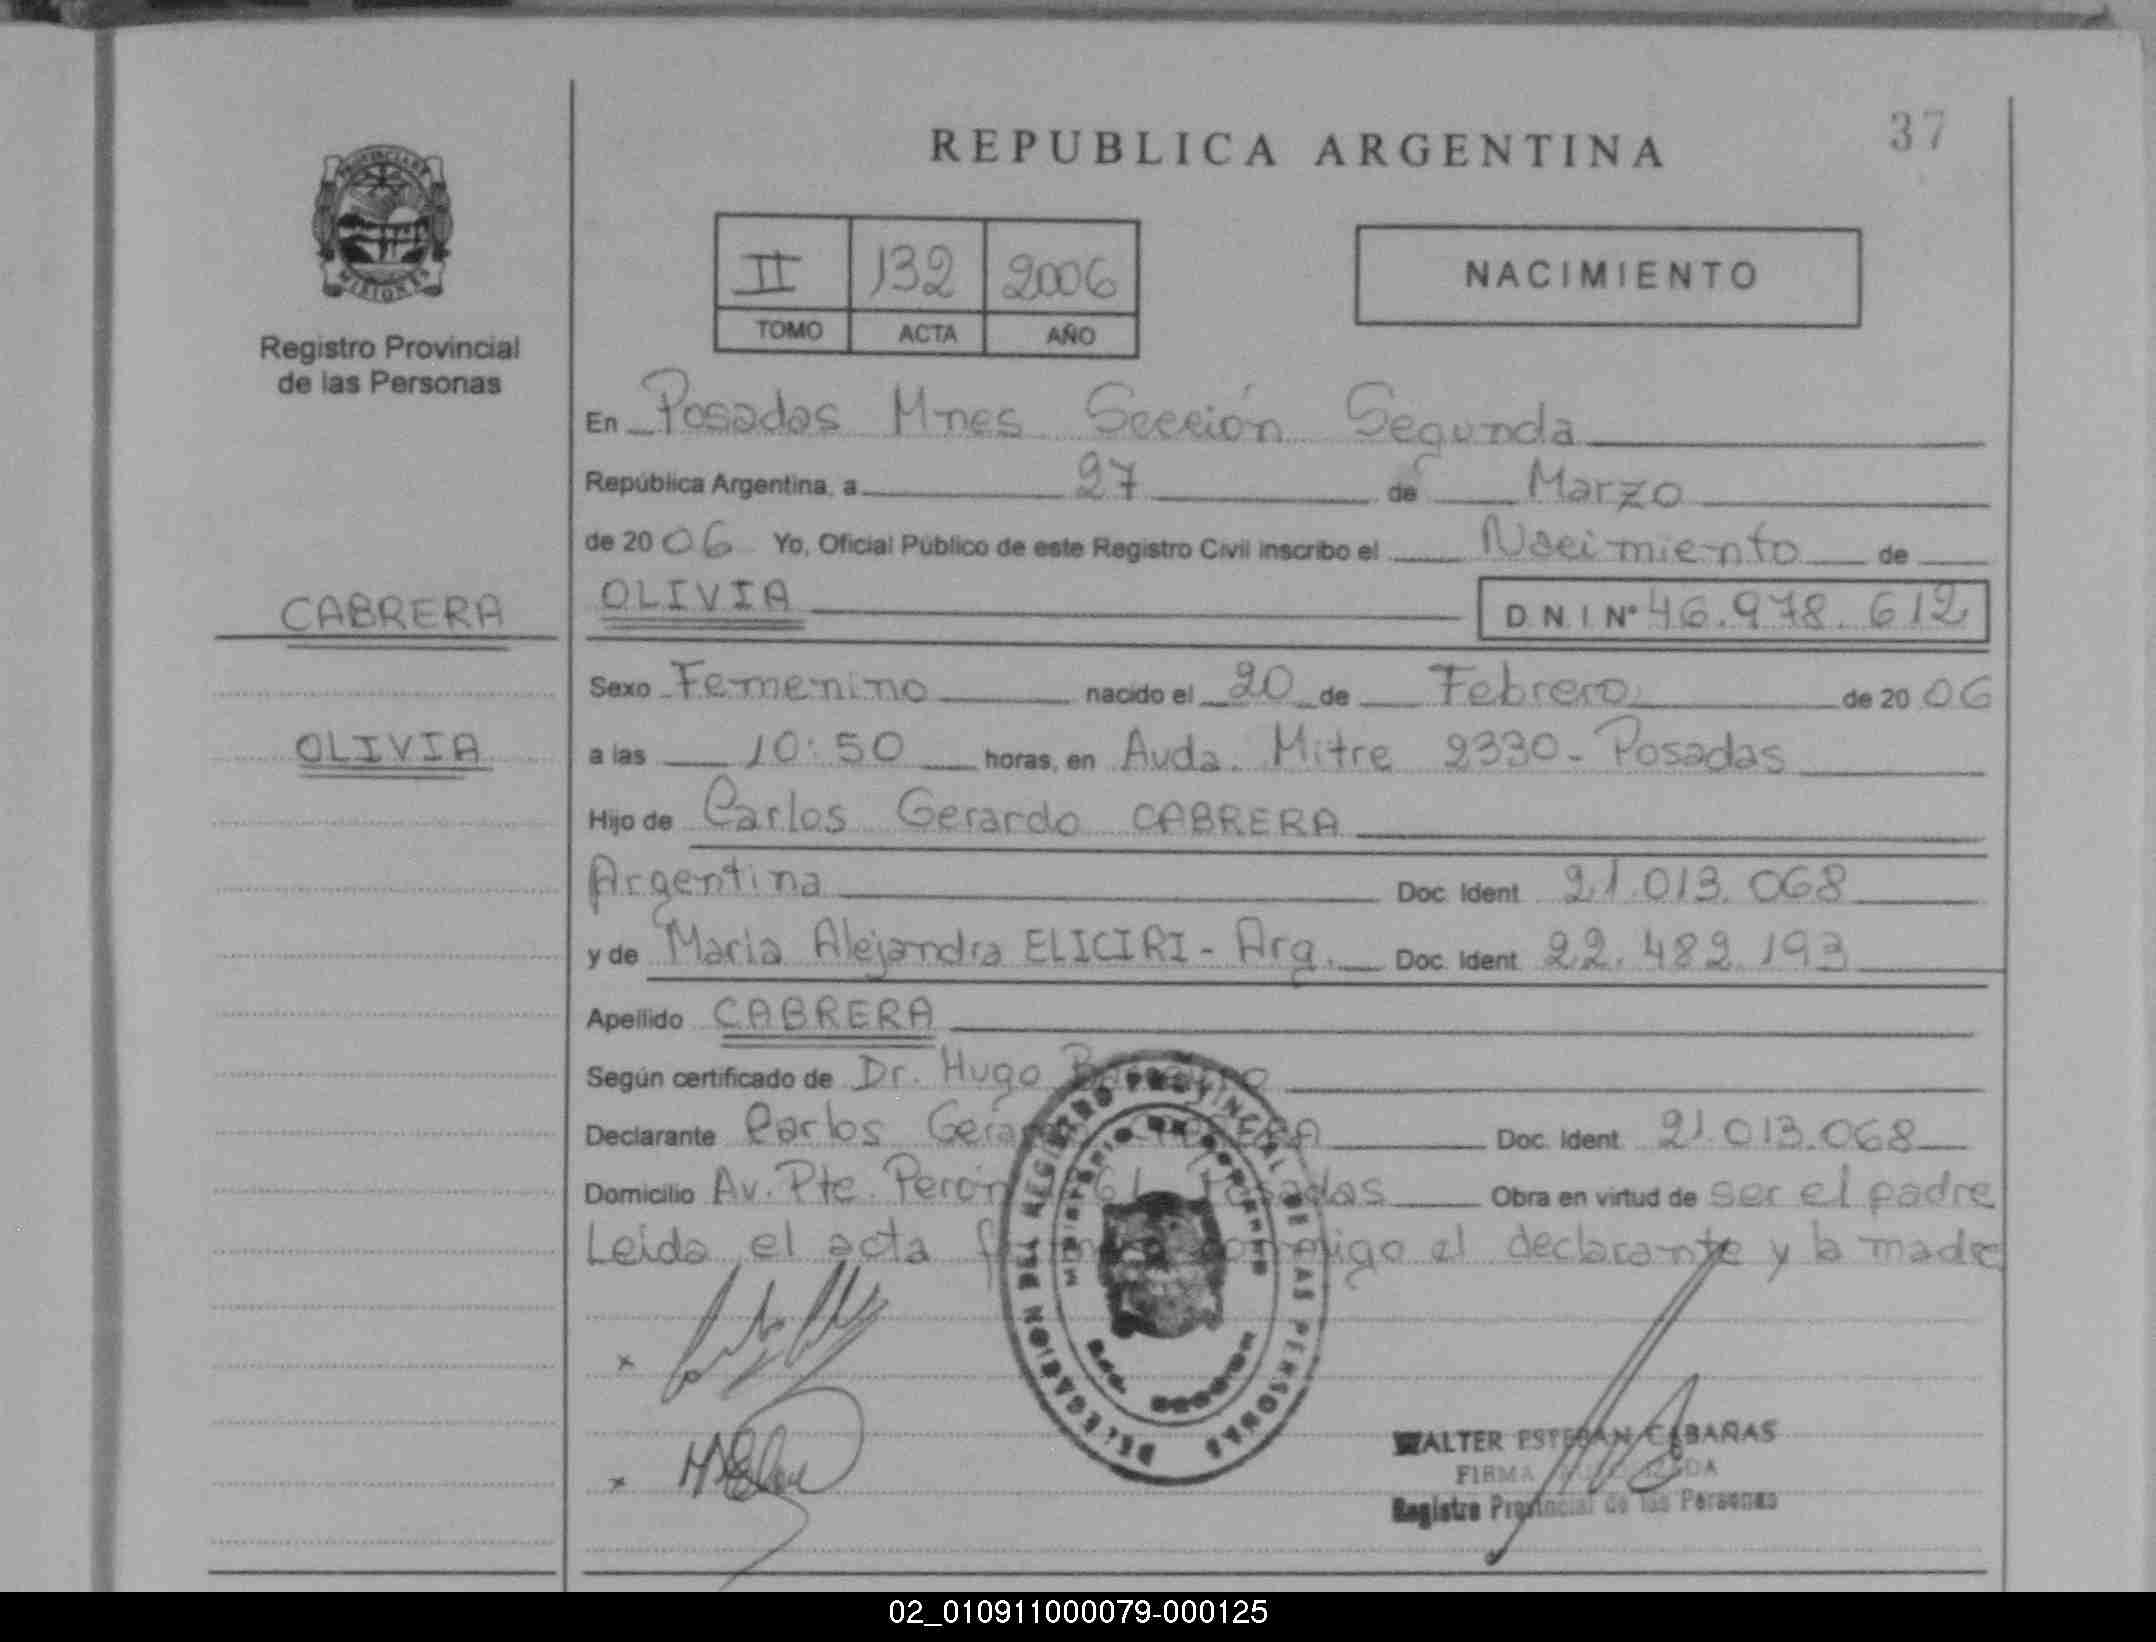 37
REPUBLICA ARGENTINA
PROVINCIA DE
MISIONES
Registro Provincial
de las Personas
II 132 2006
TOMO ACTA AÑO
NACIMIENTO
En Posadas Mnes Sección Segunda
República Argentina, a 27 de Marzo
de 2006 Yo, Oficial Público de este Registro Civil inscribo el Nacimiento de
CABRERA
OLIVIA D.N.I. Nº 46.978.612
Sexo Femenino nacido el 20 de Febrero de 2006
OLIVIA
a las 10:50 horas, en Avda. Mitre 2330 - Posadas
Hijo de Carlos Gerardo CABRERA
Argentina Doc. Ident 21.013.068
y de Maria Alejandra ELICIRI - Arg. Doc. Ident 22.482.193
Apellido CABRERA
Según certificado de Dr. Hugo
Declarante Carlos Gerardo CABRERA Doc. Ident 21.013.068
Domicilio Av. Pte. Perón Posadas Obra en virtud de ser el padre
Leida el acta conmigo el declarante y la madre
DELEGACION DEL REGISTRO PROVINCIAL DE LAS PERSONAS
MINISTERIO DE GOBIERNO
WALTER ESTEBAN CABAÑAS
FIRMA AUTORIZADA
Registro Provincial de las Personas
02_010911000079-000125